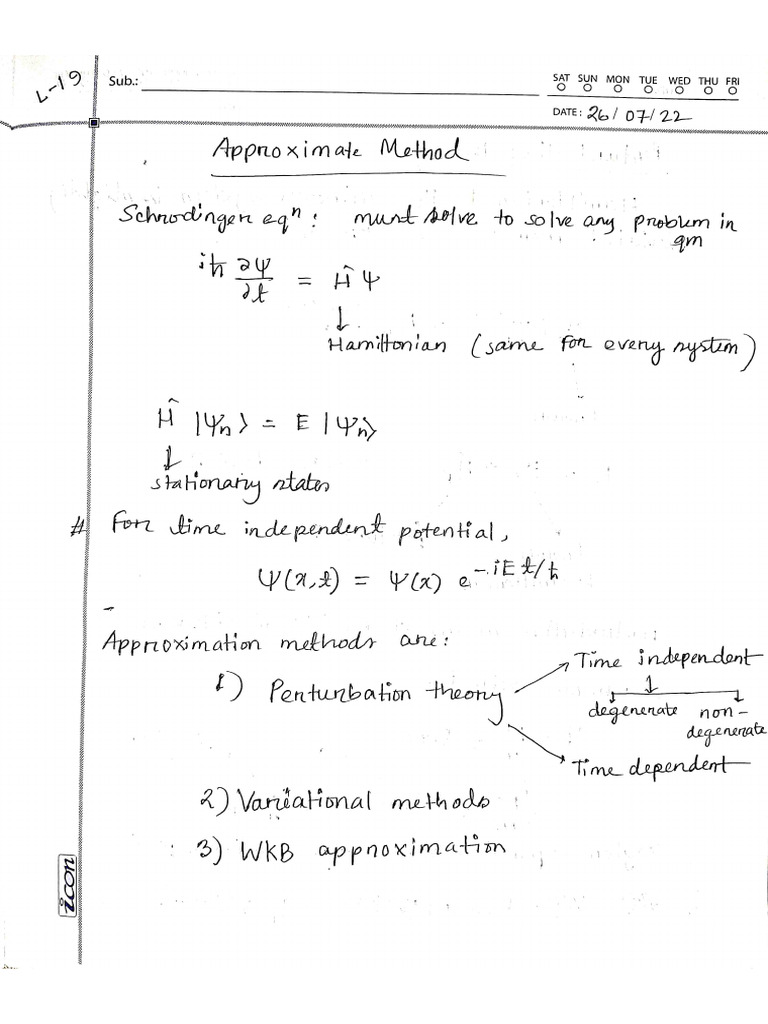 L-19
Sub.:
SAT SUN MON TUE WED THU FRI
DATE: 26/07/22
Approximate Method
Schrodinger eqⁿ: must solve to solve any problem in
qm
iħ ∂Ψ/∂t = Ĥ Ψ
↓
Hamiltonian (same for every system)
Ĥ |Ψn⟩ = E |Ψn⟩
↓
stationary states
# For time independent potential,
Ψ(x,t) = Ψ(x) e^-iEt/ħ
-
Approximation methods are:
Time independent
1) Perturbation theory
degenerate non-
degenerate
Time dependent
2) Variational methods
3) WKB approximation
icon